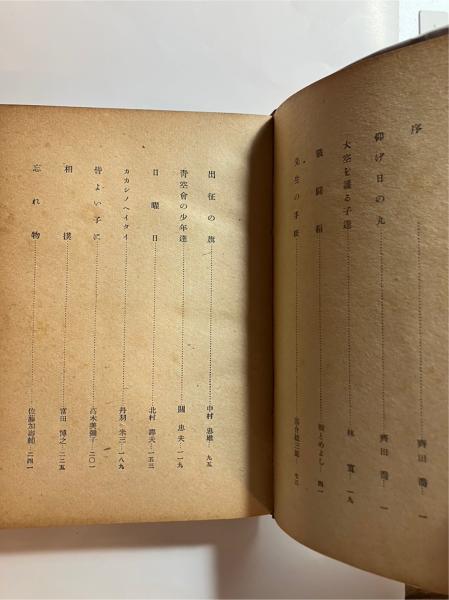 序……齊田喬…一
仰げ日の丸……齊田喬…一
大空を護る子達……林寛…一九
戰鬪帽……よし…四一
先生の手紙……落合聰三郎…七三
出征の旗……中村忠雄…九五
青空會の少年達……關忠夫…一一九
日曜日……北村壽夫…一五三
カカシノヘイタイ……丹羽米三…一八九
皆よい子に……高木美彌子…二〇一
相撲……富田博之…二二五
忘れ物……佐藤加壽輔…二四一